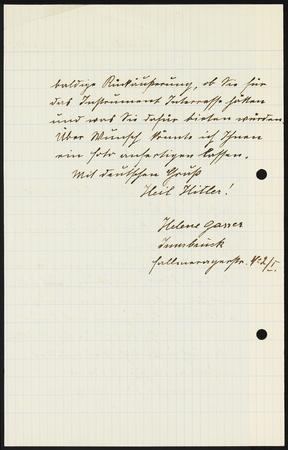 baldige Rückäußerung, ob Sie für
das Instrument Interesse hätten
und was Sie dafür bieten würden.
Über Wunsch könnte ich Ihnen
ein Foto anfertigen lassen.
Mit deutschem Gruß
Heil Hitler!
Helene Gasser
Innsbruck
Fallmerayerstr.